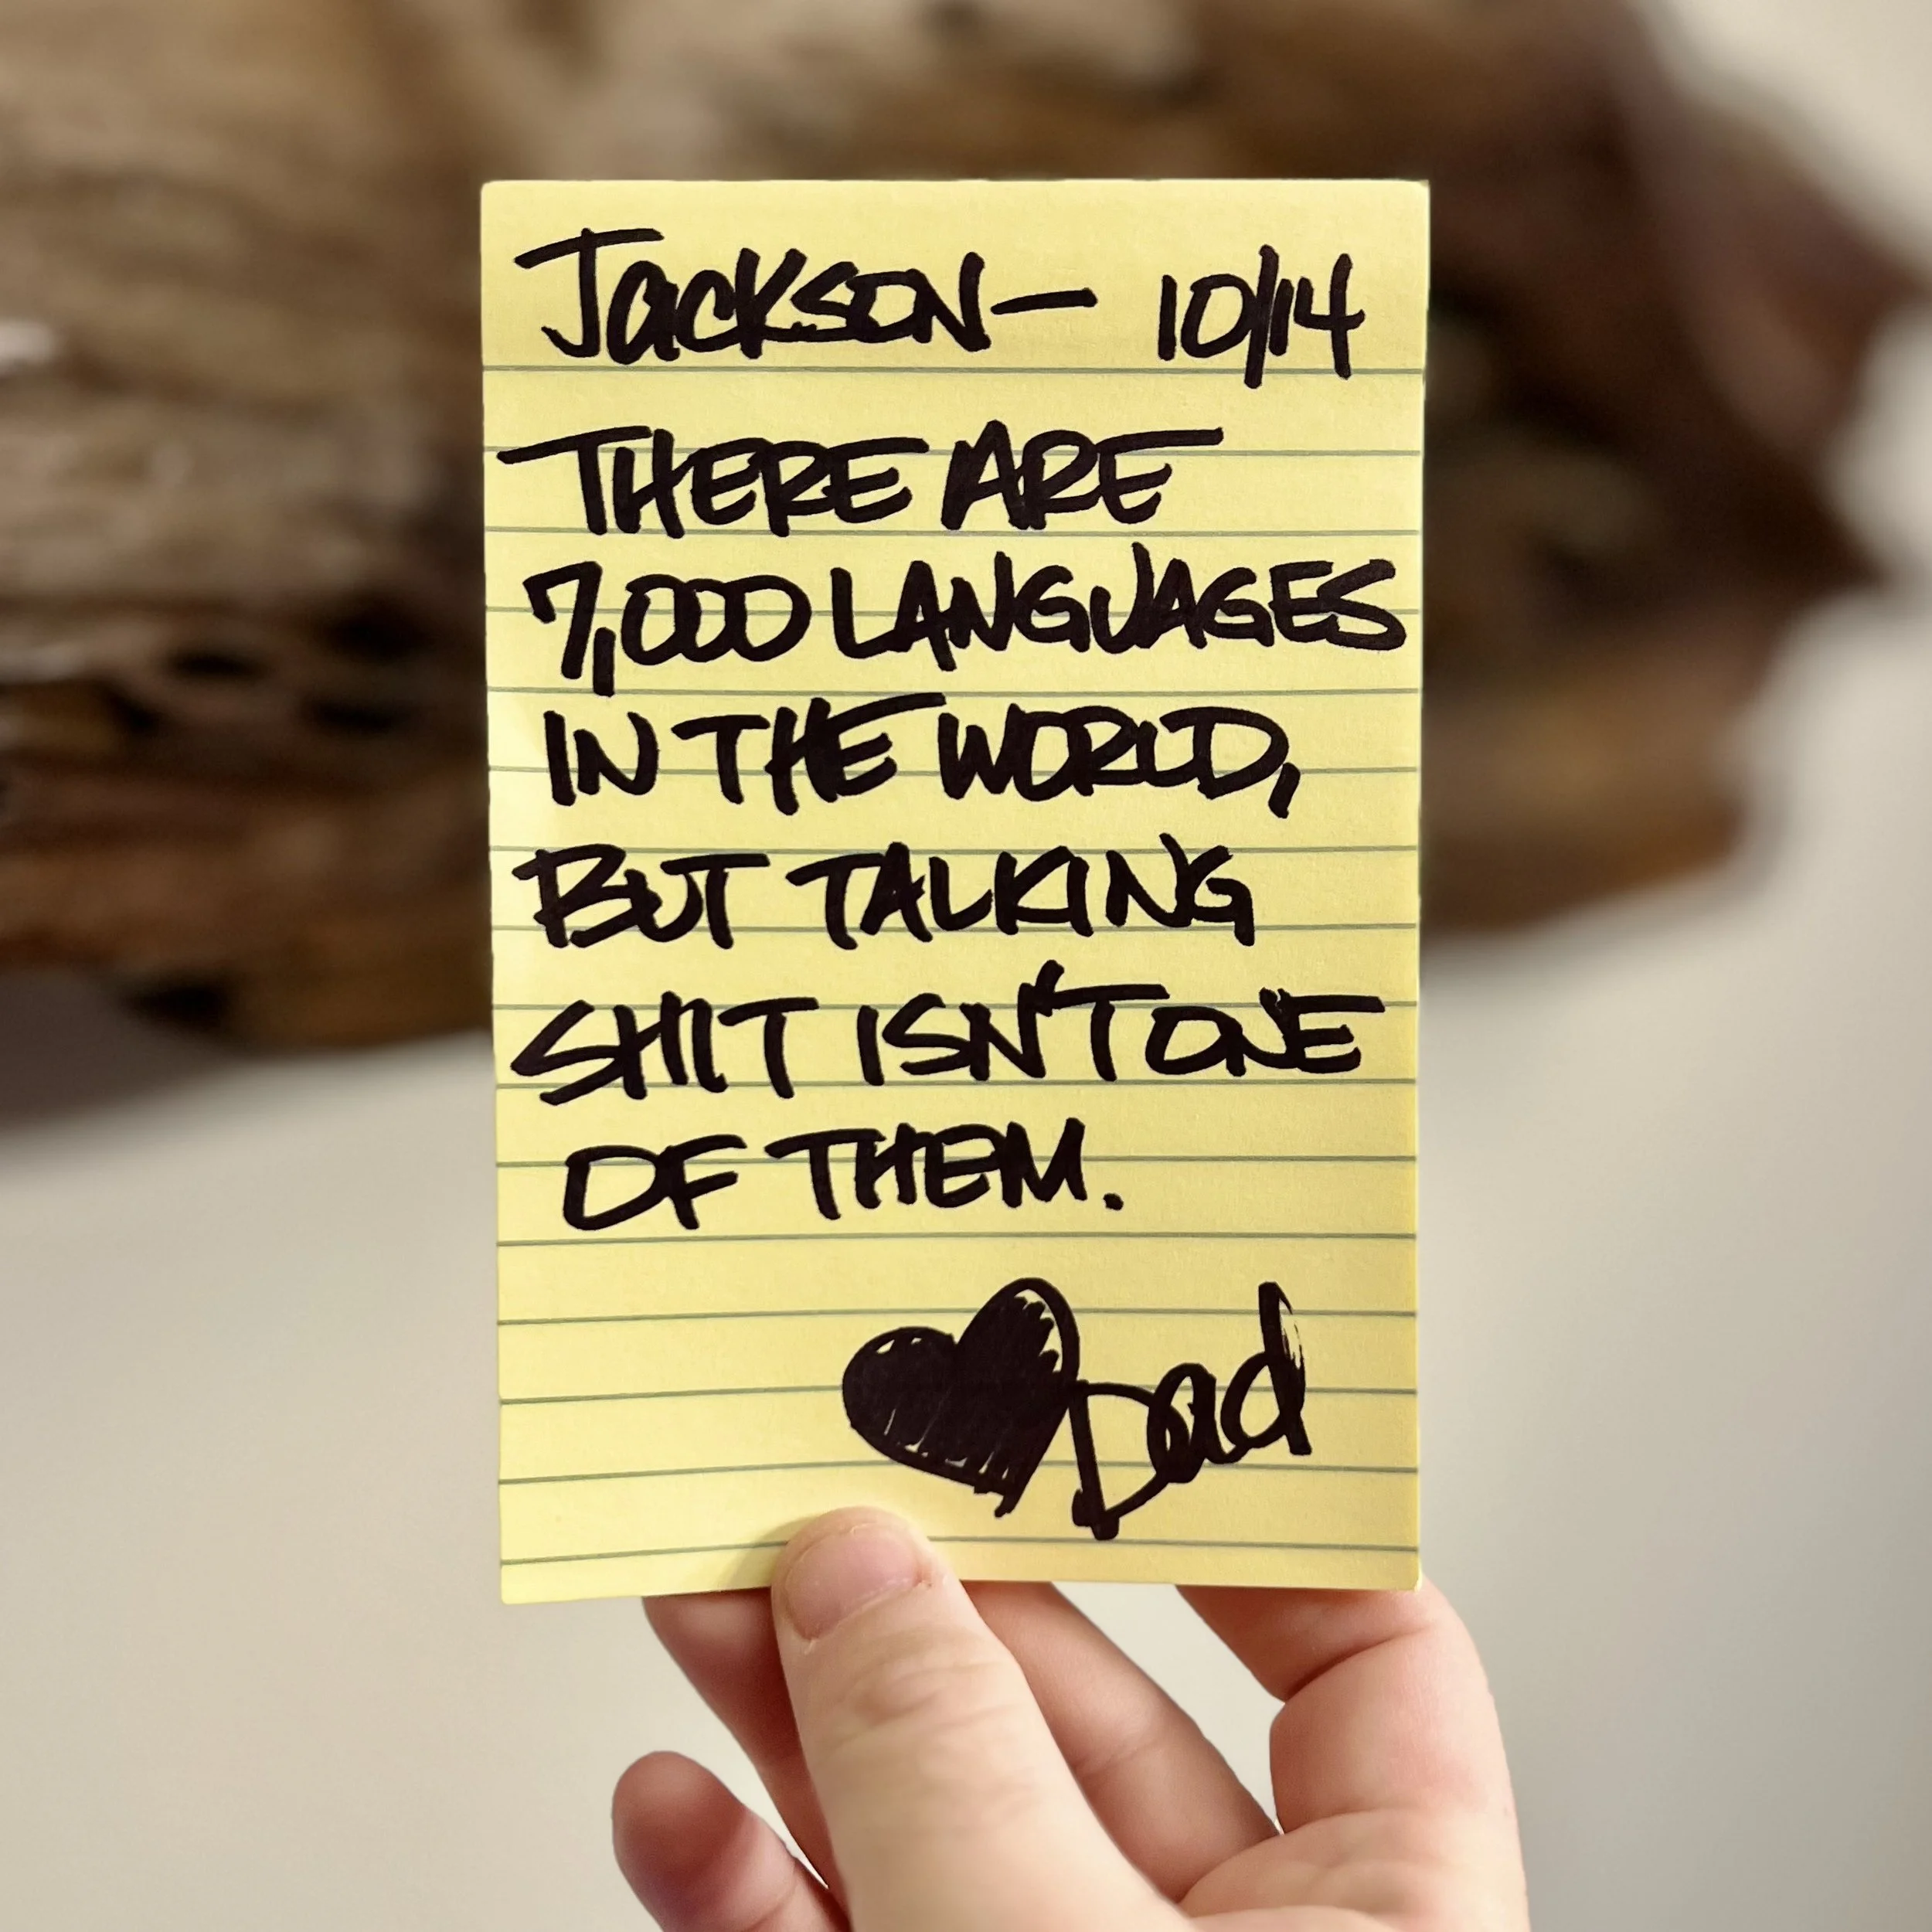 Jackson— 10/14
THERE ARE
7,000 LANGUAGES
IN THE WORLD,
BUT TALKING
SHIT ISN'T ONE
OF THEM.
Dad